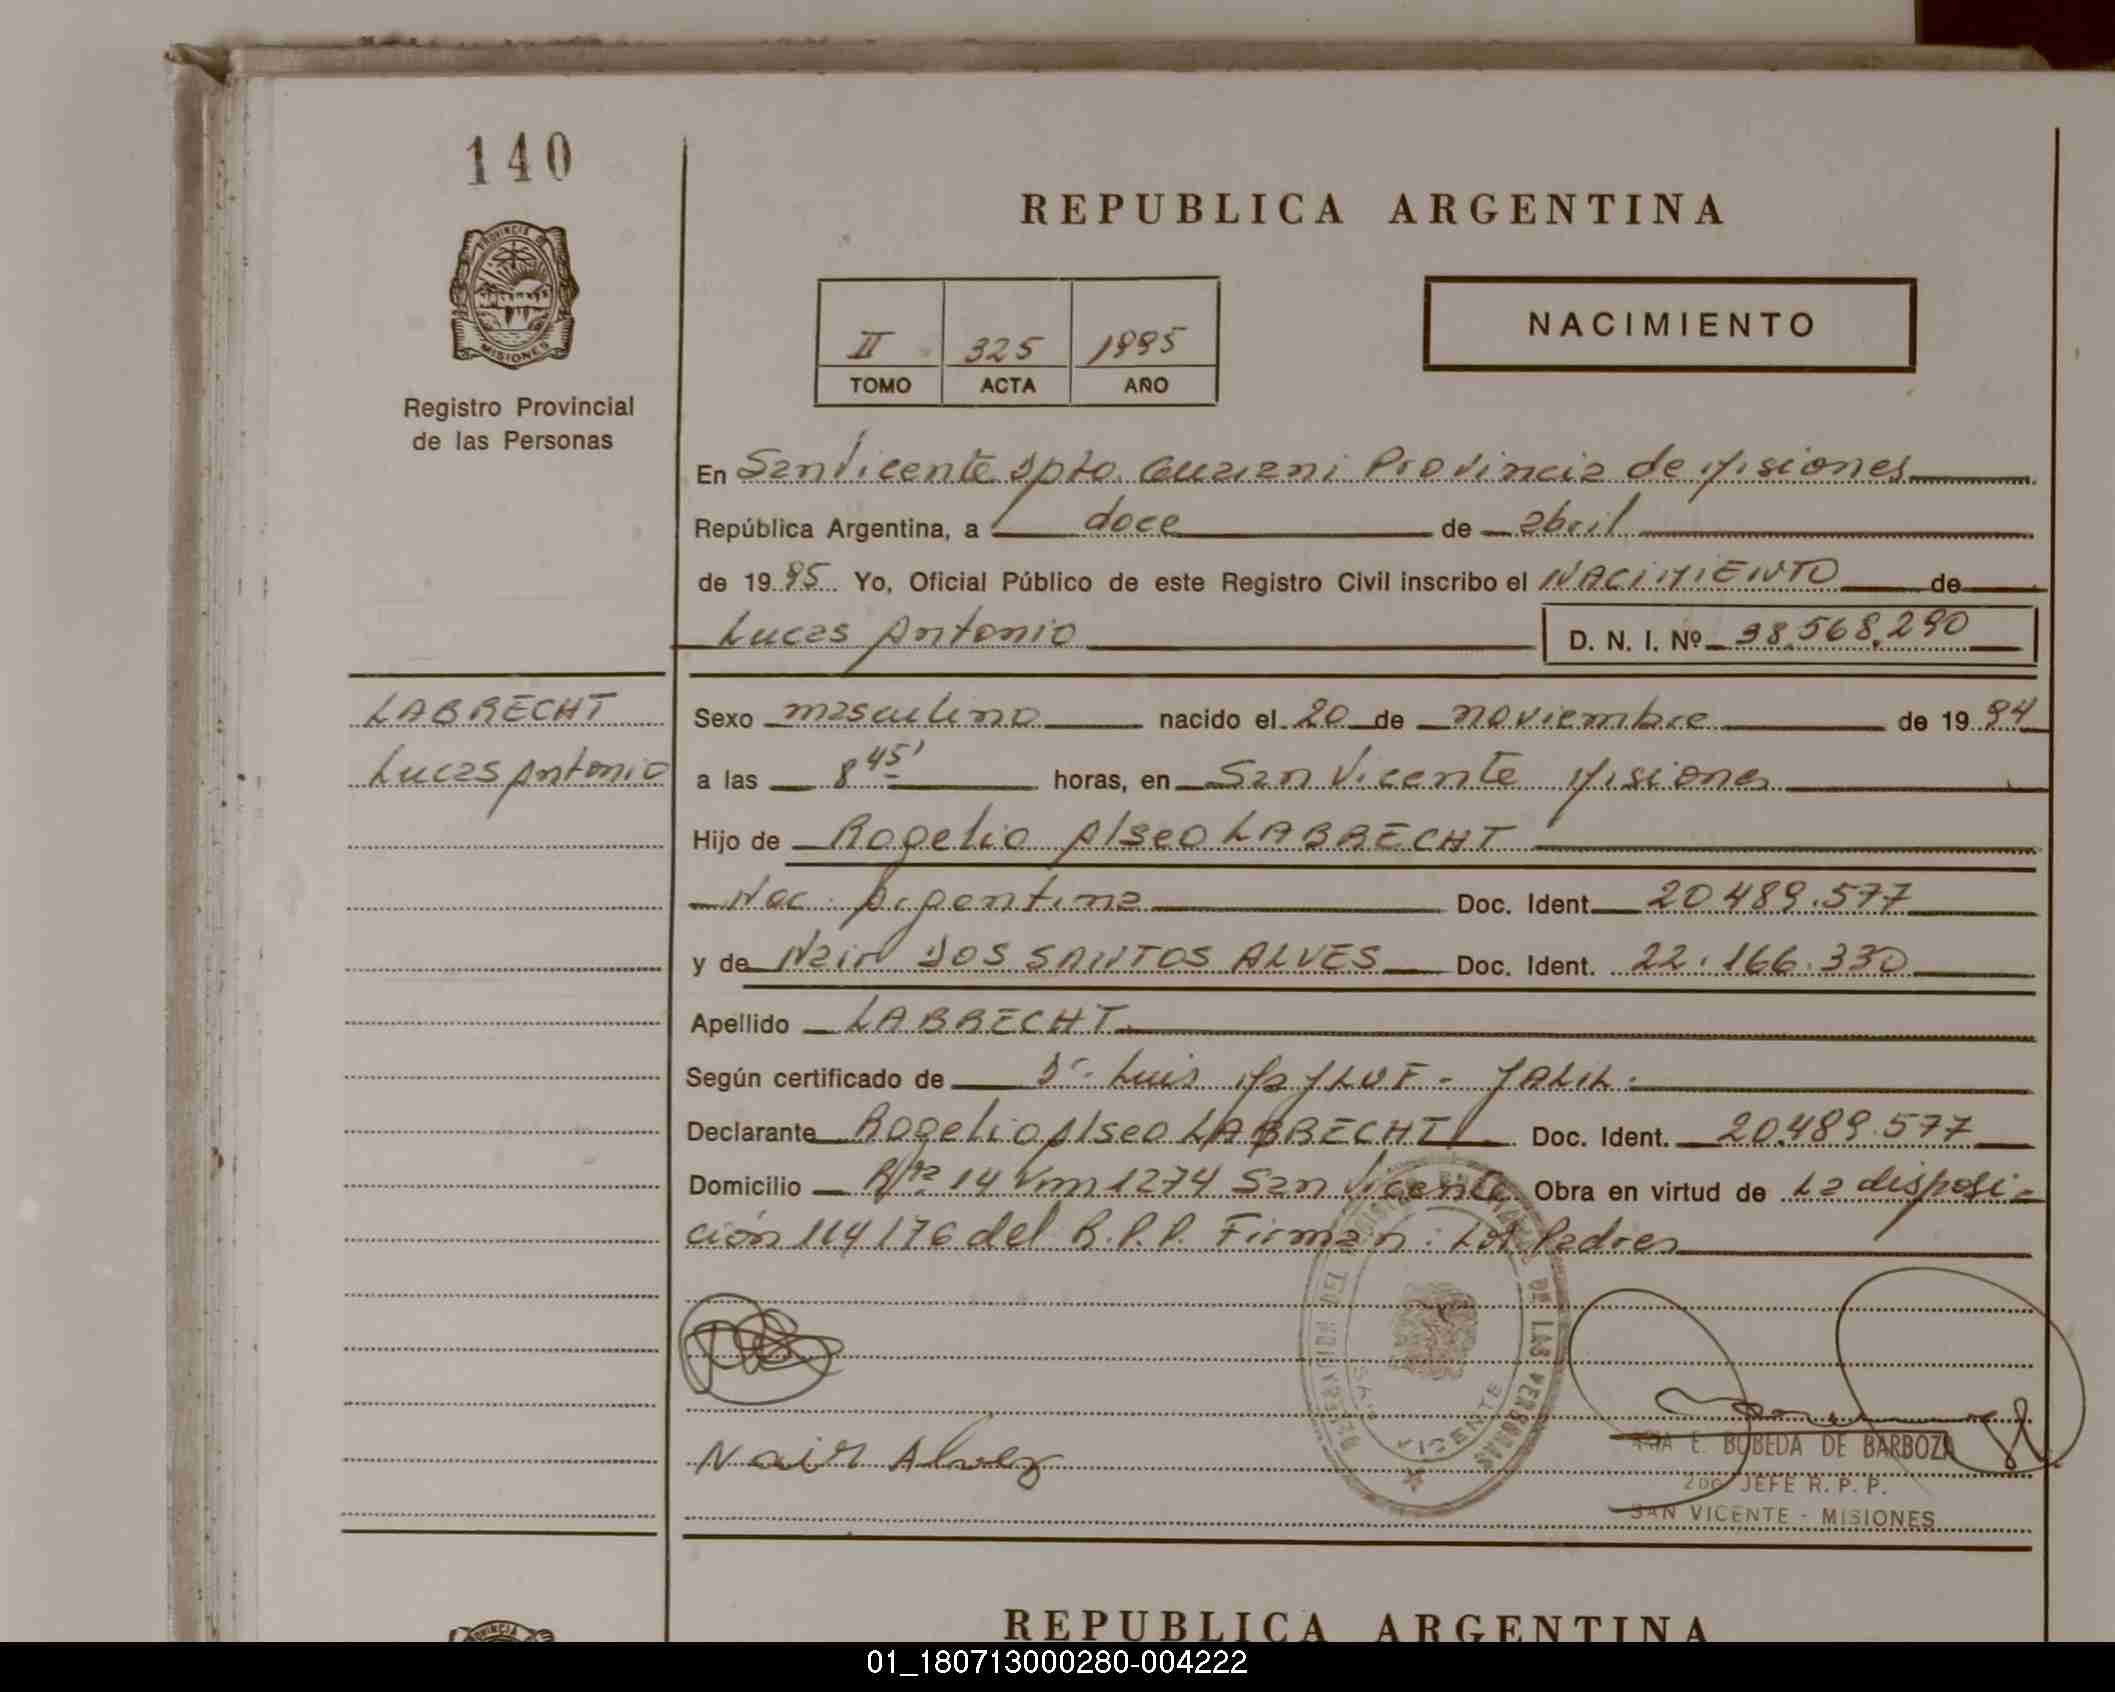 140
REPUBLICA ARGENTINA
PROVINCIA DE
MISIONES
Registro Provincial
de las Personas
II 325 1995
TOMO ACTA AÑO
NACIMIENTO
En San Vicente Dpto. Guarani Provincia de Misiones
República Argentina, a doce de abril
de 1995 Yo, Oficial Público de este Registro Civil inscribo el NACIMIENTO de
Lucas Antonio D. N. I. Nº 38.568.290
LABRECHT
Lucas Antonio
Sexo masculino nacido el 20 de noviembre de 1994
a las 8 45' horas, en San Vicente Misiones
Hijo de Rogelio Alseo LABRECHT
Nac. Argentina Doc. Ident. 20.489.577
y de Nair DOS SANTOS ALVES Doc. Ident. 22.166.330
Apellido LABRECHT
Según certificado de Dr. Luis JALIL.
Declarante Rogelio Alseo LABRECHT Doc. Ident. 20.489.577
Domicilio Rta 14 Km 1274 San Vicente Obra en virtud de La disposi-
ción 114/76 del R.P.P. Firman: Los Padres
DE LAS PERSONAS
VICENTE
Nair Alvez
E. BOBEDA DE BARBOZA
2DO JEFE R. P. P.
SAN VICENTE - MISIONES
REPUBLICA ARGENTINA
01_180713000280-004222